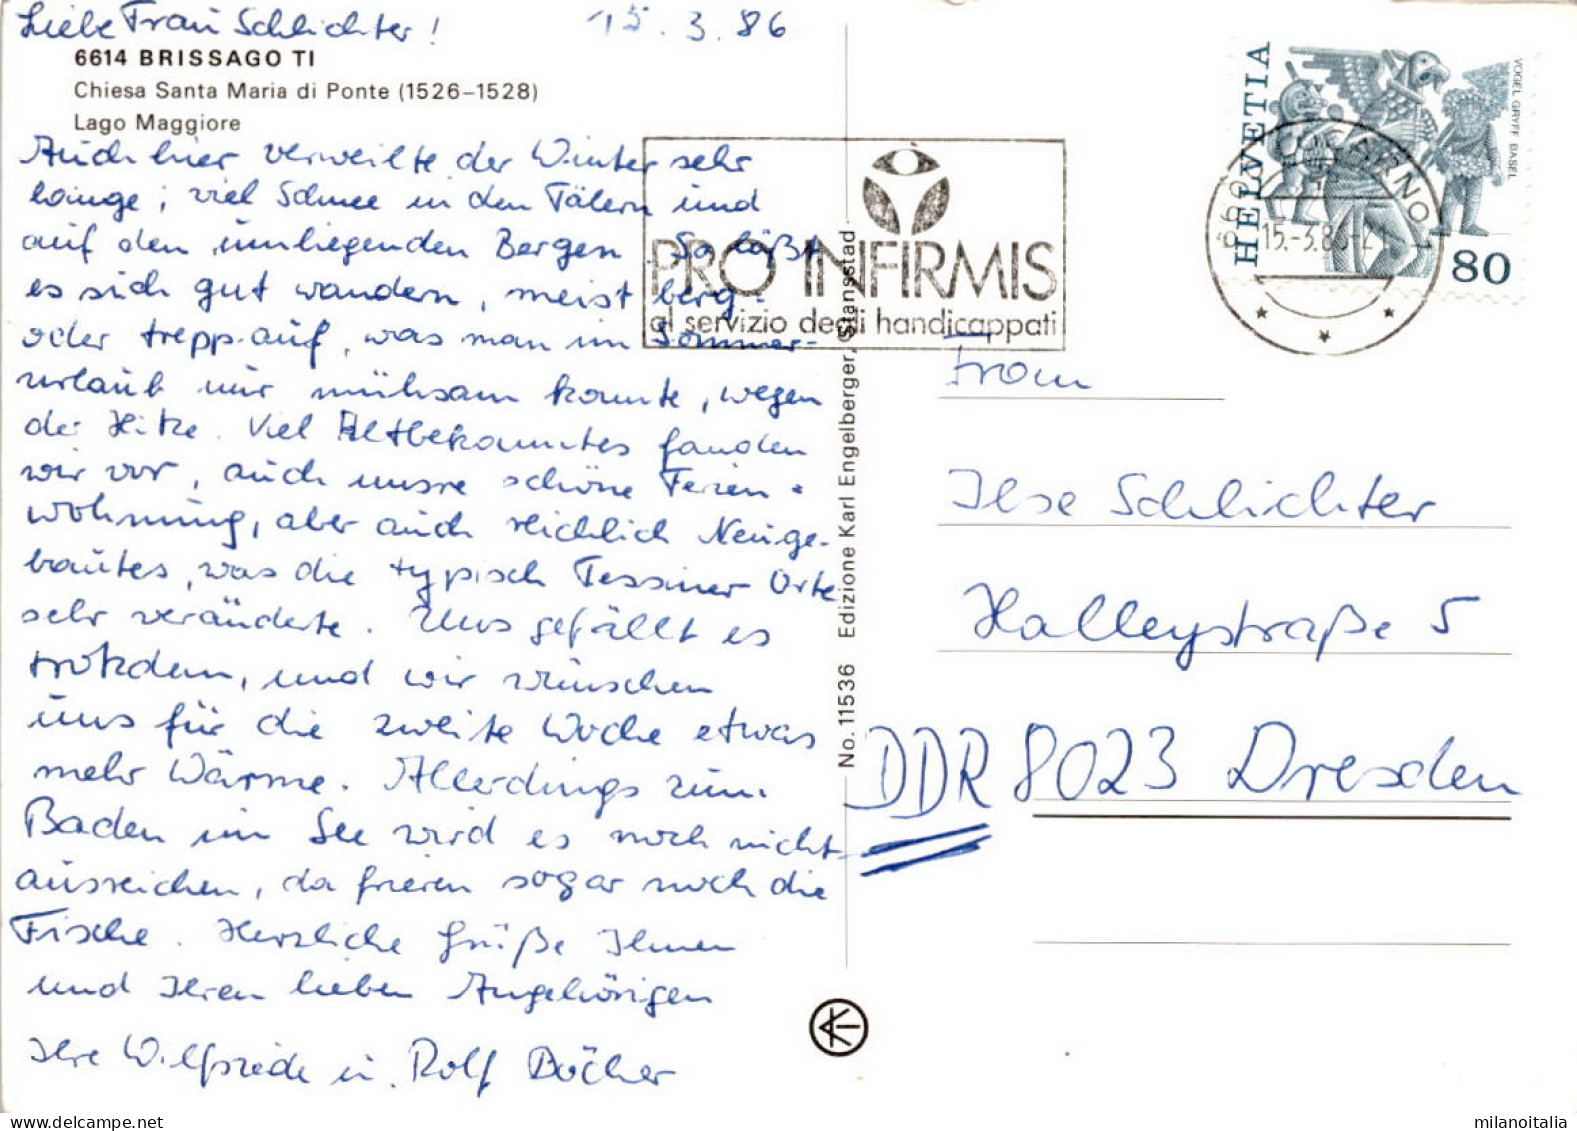 Liebe Frau Schlichter! 15.3.86
6614 BRISSAGO TI
Chiesa Santa Maria di Ponte (1526–1528)
Lago Maggiore
Auch hier verweilte der Winter sehr
lange; viel Schnee in den Tälern und
auf den umliegenden Bergen. So läßt
es sich gut wandern, meist berg-
oder treppauf, was man im Sommer-
urlaub nur mühsam konnte, wegen
der Hitze. Viel Altbekanntes fanden
wir vor, auch unsre schöne Ferien-
wohnung, aber auch reichlich Neuge-
bautes, was die typisch Tessiner Orte
sehr veränderte. Uns gefällt es
trotzdem, und wir wünschen
uns für die zweite Woche etwas
mehr Wärme. Allerdings zum
Baden im See wird es noch nicht
ausreichen, da frieren sogar noch die
Fische. Herzliche Grüße Ihnen
und Ihren lieben Angehörigen
Ihre Wilfriede u. Rolf Böcher
No. 11536 Edizione Karl Engelberger, Stansstad
PRO INFIRMIS
al servizio degli handicappati
HELVETIA
VOGEL GRYFF BASEL
80
6600 LOCARNO 1
15.-3.86-21
Frau
Ilse Schlichter
Halleystraße 5
DDR 8023 Dresden
milanoitalia